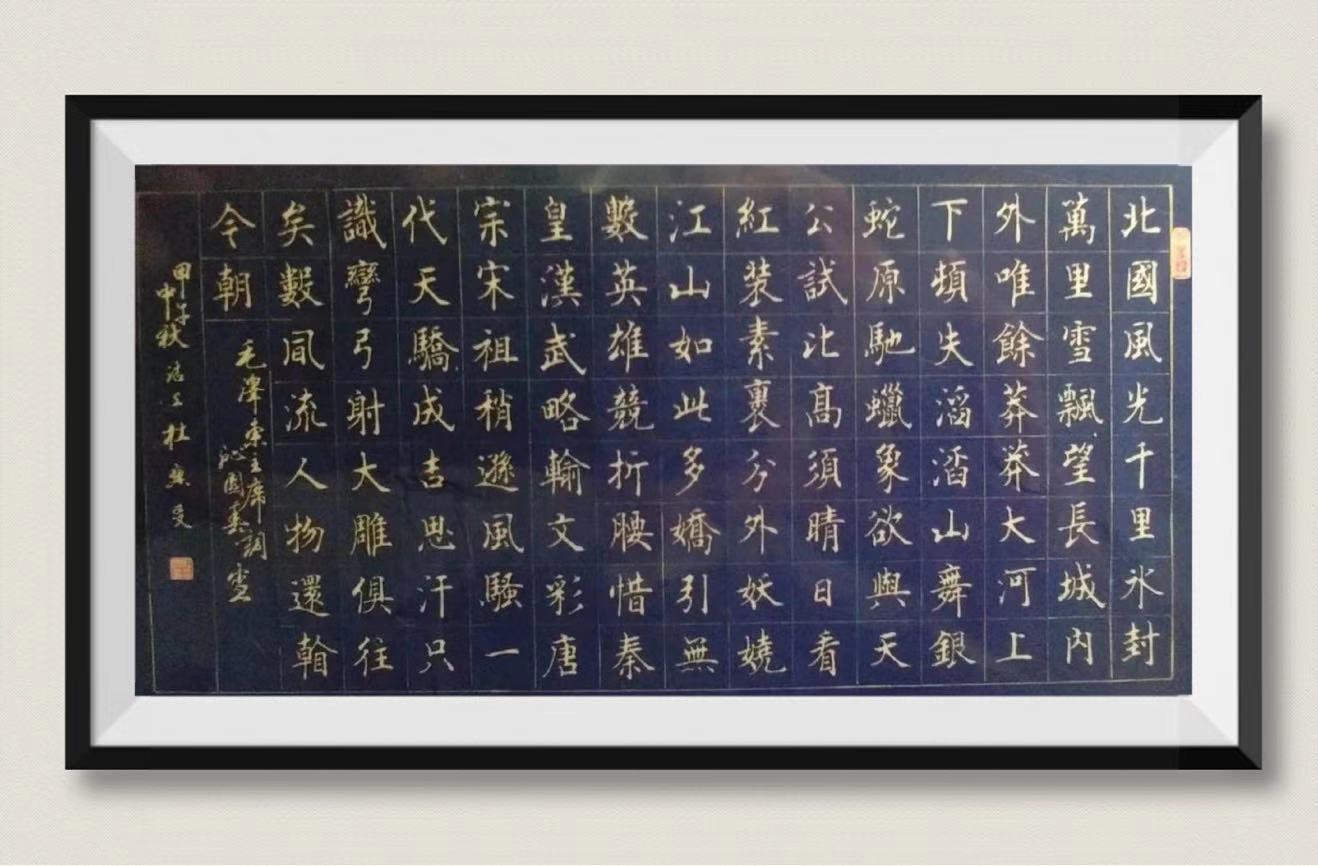 北國風光千里氷封
萬里雪飄望長城內
外唯餘莽莽大河上
下頓失滔滔山舞銀
蛇原馳蠟象欲與天
公試比髙須晴日看
紅裝素裏分外妖嬈
江山如此多嬌引無
數英雄競折腰惜秦
皇漢武略輸文彩唐
宗宋祖稍遜風騷一
代天驕成吉思汗只
識彎弓射大雕俱往
矣數風流人物還翰
今朝
毛澤東主席
沁園春詞雪
甲申秋 杜